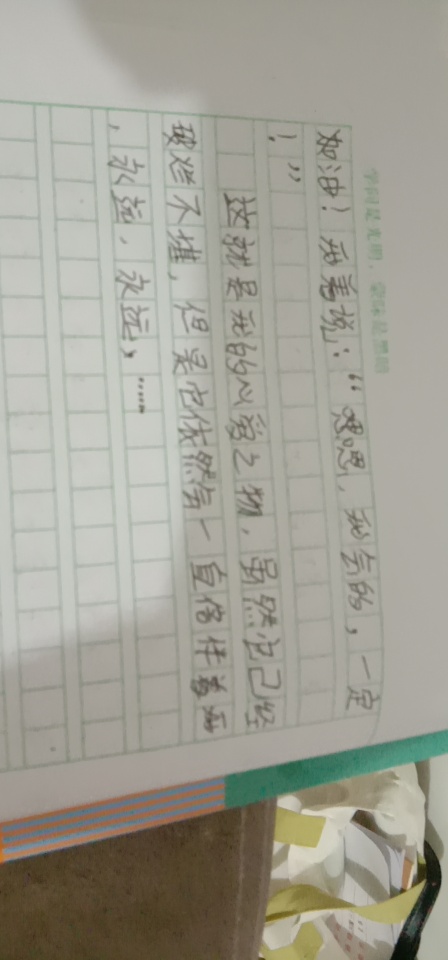 学问是光明，蒙昧是黑暗
加油！我着说：“嗯嗯，我会的，一定
！”
这就是我的心爱之物，虽然它已经
破烂不堪，但是它依然会一直陪伴着我
，永远，永远、……